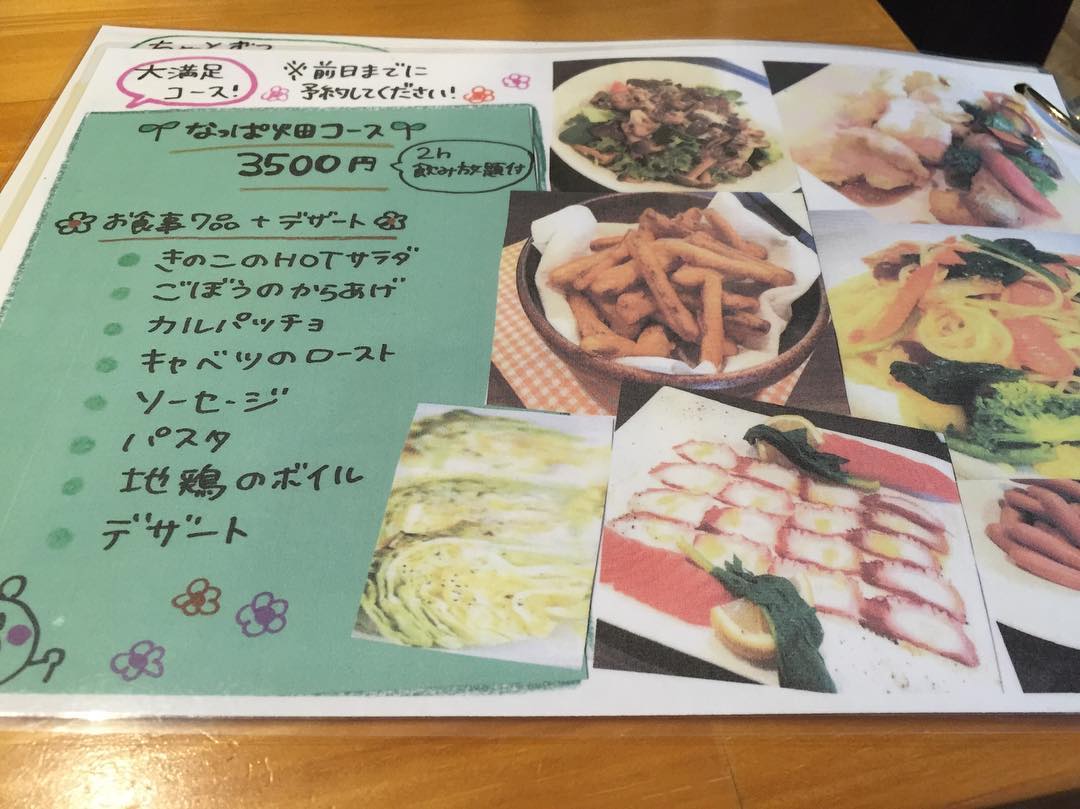 大満足
コース!
※前日までに
予約してください!
なっぱ畑コース
3500円
2h
飲み放題付
お食事7品+デザート
きのこのHOTサラダ
ごぼうのからあげ
カルパッチョ
キャベツのロースト
ソーセージ
パスタ
地鶏のボイル
デザート